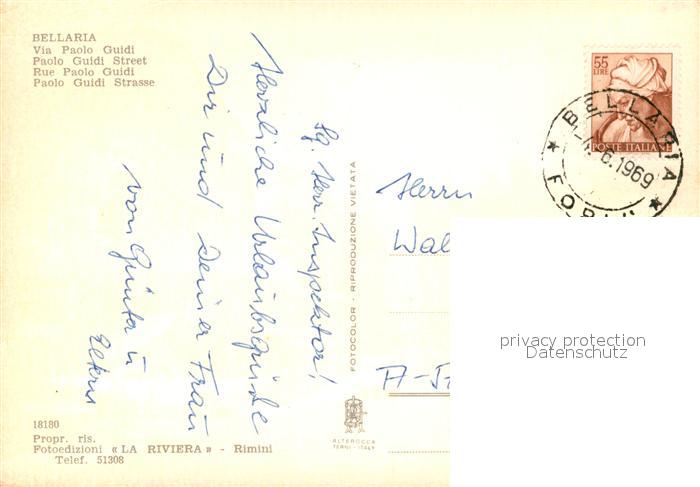 BELLARIA
Via Paolo Guidi
Paolo Guidi Street
Rue Paolo Guidi
Paolo Guidi Strasse
Sg. Herr Inspektor!
Herzliche Urlaubsgrüße
Dir und Deiner Frau
von Günter u
Eltern
FOTOCOLOR - RIPRODUZIONE VIETATA
55
LIRE
POSTE ITALIANE
BELLARIA
6.1969
Herrn
Wal
A-
privacy protection
Datenschutz
18180
Propr. ris.
Fotoedizioni « LA RIVIERA » - Rimini
Telef. 51308
ALTEROCCA
TERNI - ITALY